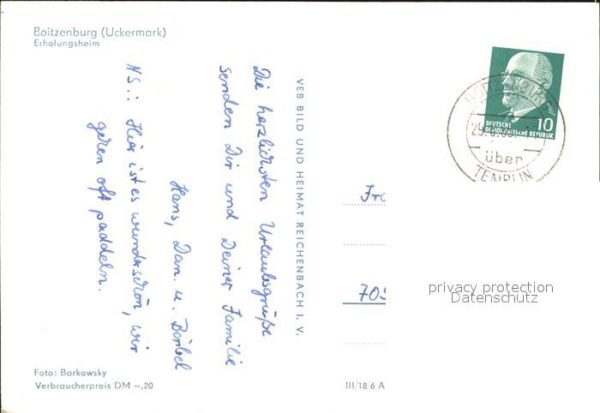 Boitzenburg (Uckermark)
Erholungsheim
Die herzlichsten Urlaubsgrüße
senden Dir und Deiner Familie
Hans, Dan. u. Bärbel
NS.: Hier ist es wunderschön, wir
gehen oft paddeln.
VEB BILD UND HEIMAT REICHENBACH I. V.
10
DEUTSCHE
DEMOKRATISCHE REPUBLIK
über
TEMPLIN
Fre
705
privacy protection
Datenschutz
Foto: Barkowsky
Verbraucherpreis DM –,20
III/18/6 A